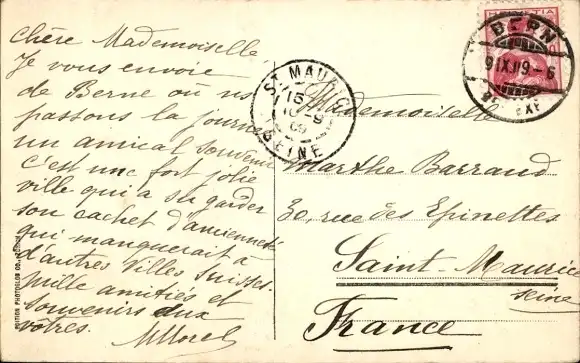 Chère Mademoiselle
Je vous envoie
de Berne où ns
passons la journée
un amical souvenir
c'est une fort jolie
ville qui a su garder
son cachet d'ancienneté
qui manquerait à
d'autres villes suisses.
mille amitiés et
souvenirs aux
vôtres.
Mademoiselle
Marthe Barrand
30, rue des Epinettes
Saint-Maurice
Seine
France
HELVETIA
BERN
9.IX.09-6
EXP.
ST MAURICE
15
10-9
09
SEINE
EDITION PHOTOGLOB CO., ZÜRICH